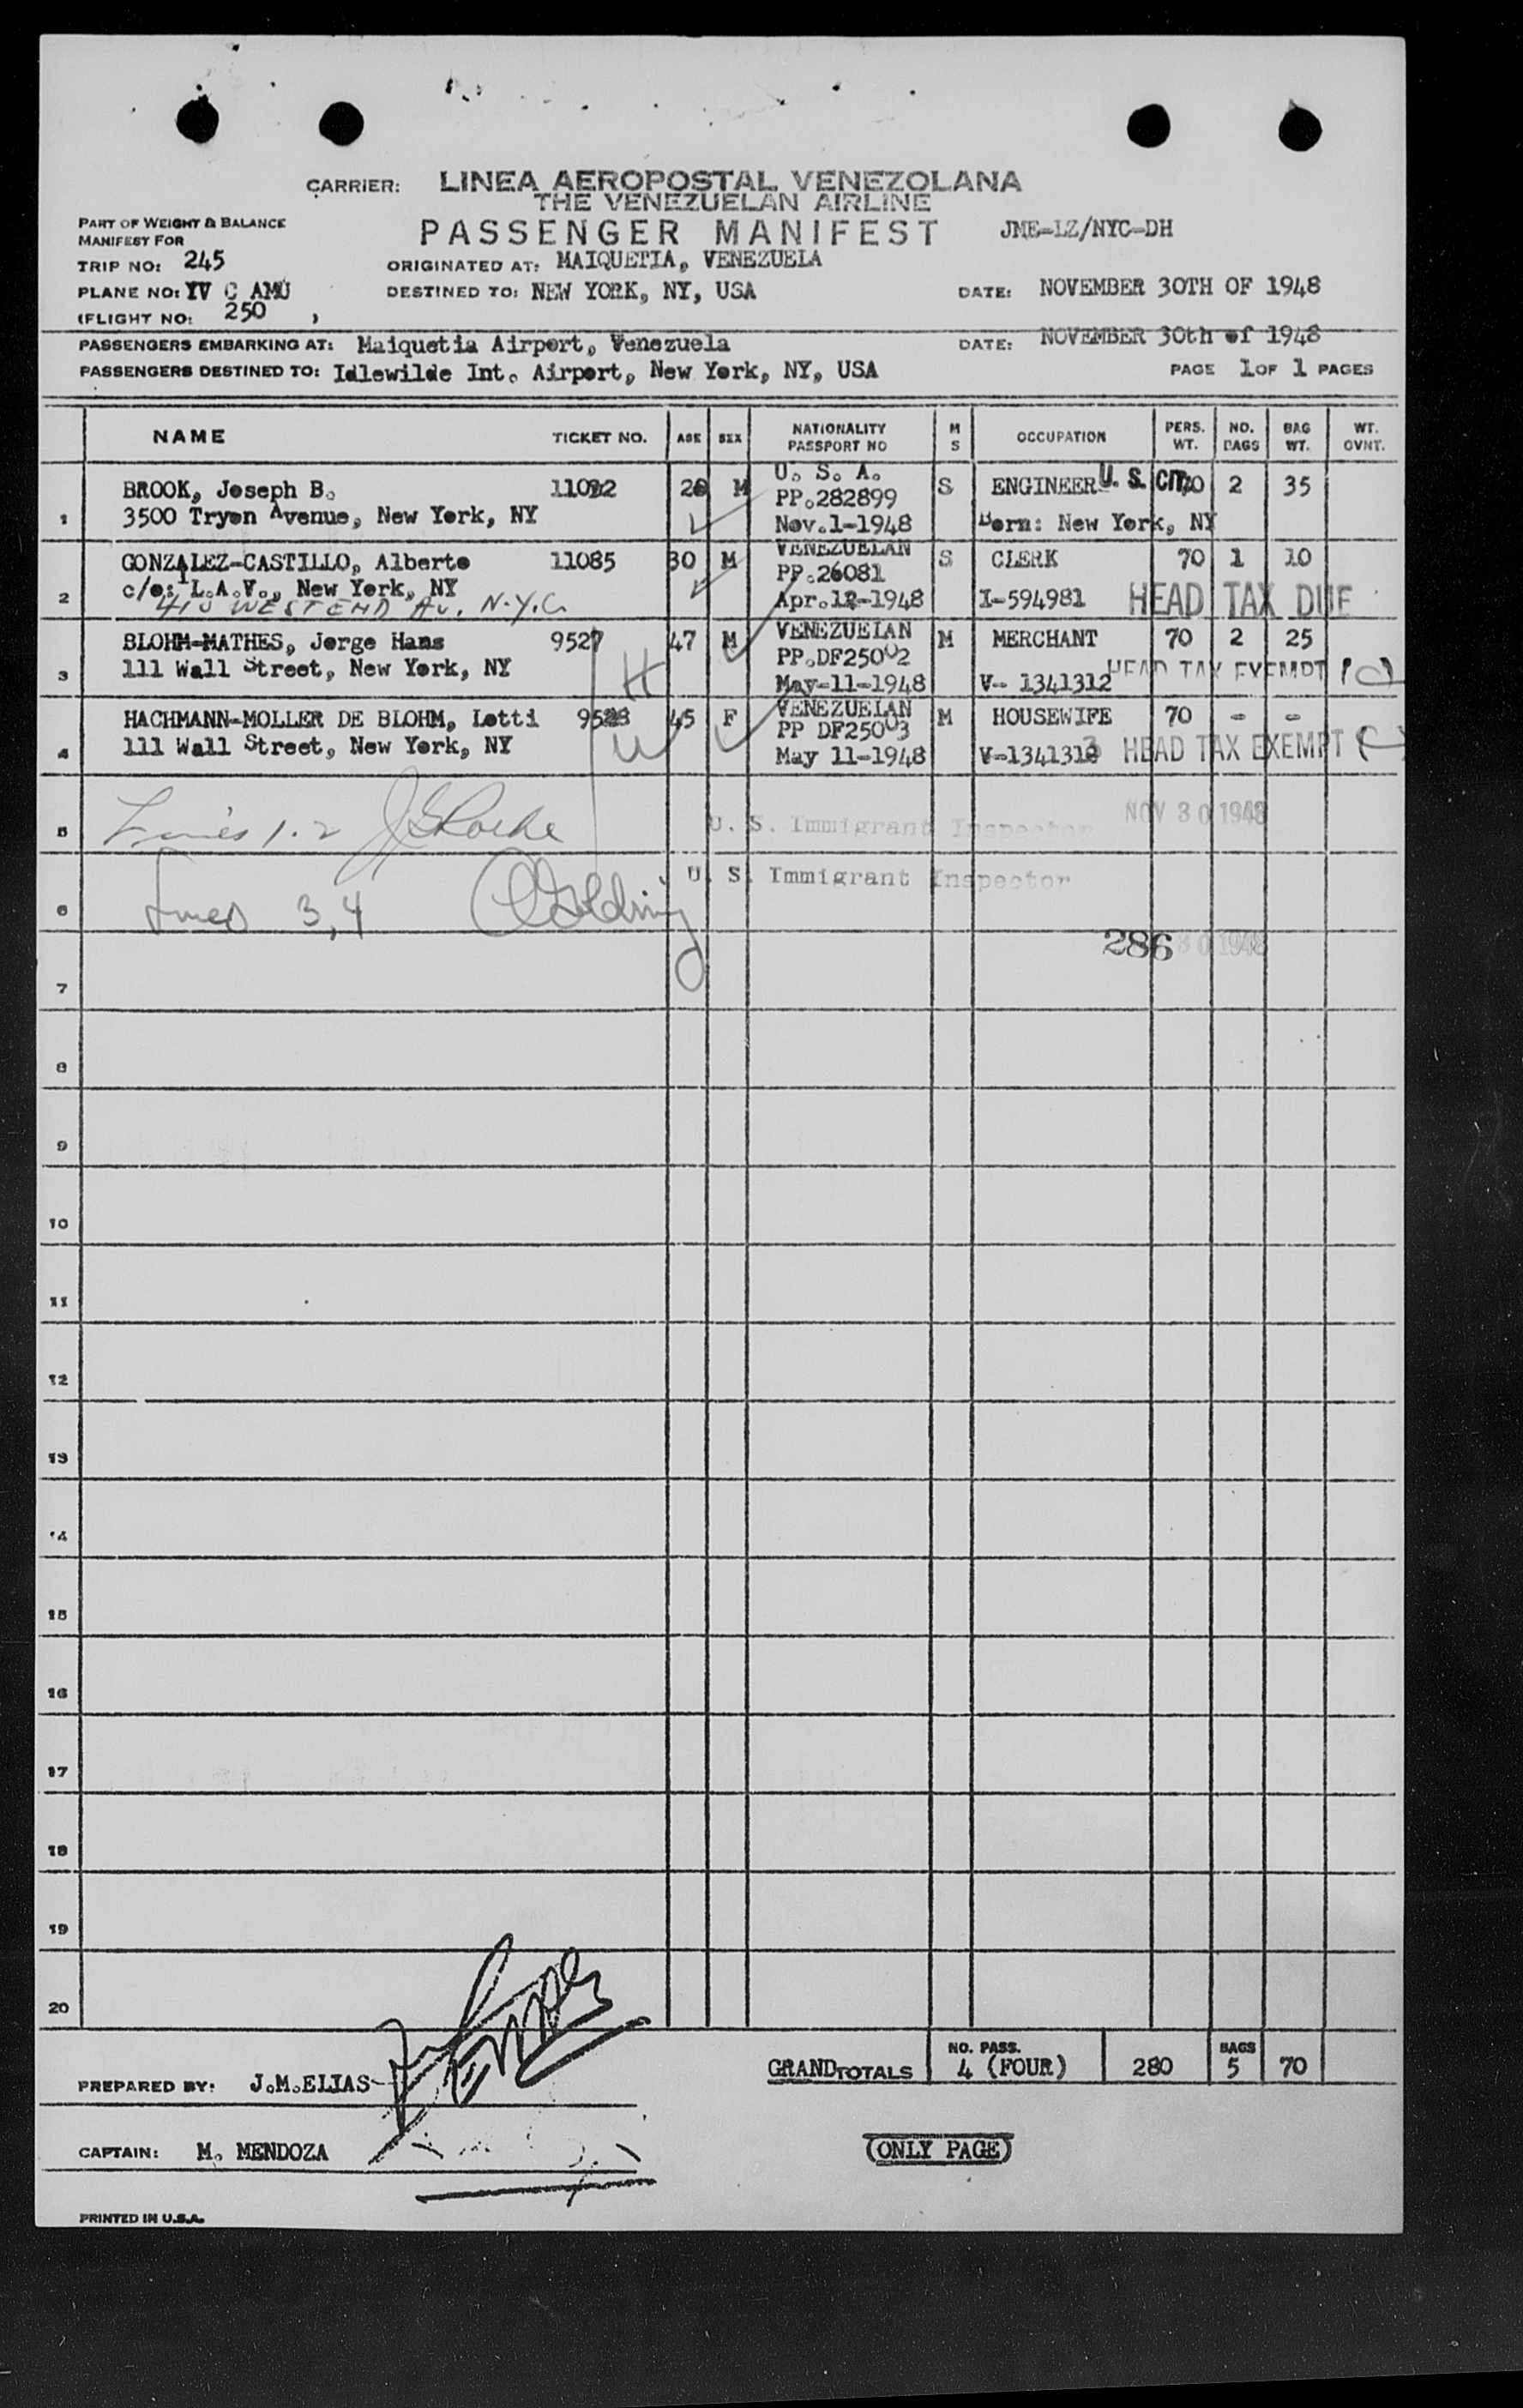 CARRIER: LINEA AEROPOSTAL VENEZOLANA
THE VENEZUELAN AIRLINE
PART OF WEIGHT & BALANCE
MANIFEST FOR
PASSENGER MANIFEST JME-LZ/NYC-DH
TRIP NO: 245 ORIGINATED AT: MAIQUETIA, VENEZUELA
PLANE NO: YV C AMU DESTINED TO: NEW YORK, NY, USA DATE: NOVEMBER 30TH OF 1948
(FLIGHT NO: 250 )
PASSENGERS EMBARKING AT: Maiquetia Airport, Venezuela DATE: NOVEMBER 30th of 1948
PASSENGERS DESTINED TO: Idlewilde Int. Airport, New York, NY, USA PAGE 1 OF 1 PAGES
NAME TICKET NO. AGE SEX NATIONALITY PASSPORT NO M S OCCUPATION PERS. WT. NO. BAGS BAG WT. WT. OVNT.
U. S. A.
BROOK, Joseph B. M PP.282899 S ENGINEER U. S. CIT. 2 35
1 3500 Tryon Avenue, New York, NY Nov.1-1948 Born: New York, NY
VENEZUELAN
GONZALEZ-CASTILLO, Alberto 11085 30 M PP.26081 S CLERK 70 1 10
2 c/o: L.A.V., New York, NY Apr.12-1948 I-594981 HEAD TAX DUE
WEST END Av. N.Y.C.
BLOHM-MATHES, Jorge Hans 9527 47 M VENEZUELAN M MERCHANT 70 2 25
3 111 Wall Street, New York, NY PP.DF25002
May-11-1948 V- 1341312 HEAD TAX EXEMPT (C)
H
HACHMANN-MOLLER DE BLOHM, Lotti 9528 45 F VENEZUELAN M HOUSEWIFE 70 - -
PP DF25003
4 111 Wall Street, New York, NY May 11-1948 V-1341313 HEAD TAX EXEMPT
W
5 Lines 1.2 U. S. Immigrant Inspector NOV 30 1948
6 Lines 3,4 U. S. Immigrant Inspector
286 30 1948
7
8
9
10
11
12
13
14
15
16
17
18
19
20
GRAND TOTALS NO. PASS. 4 (FOUR) 280 BAGS 5 70
PREPARED BY: J.M.ELIAS
CAPTAIN: M. MENDOZA
(ONLY PAGE)
PRINTED IN U.S.A.